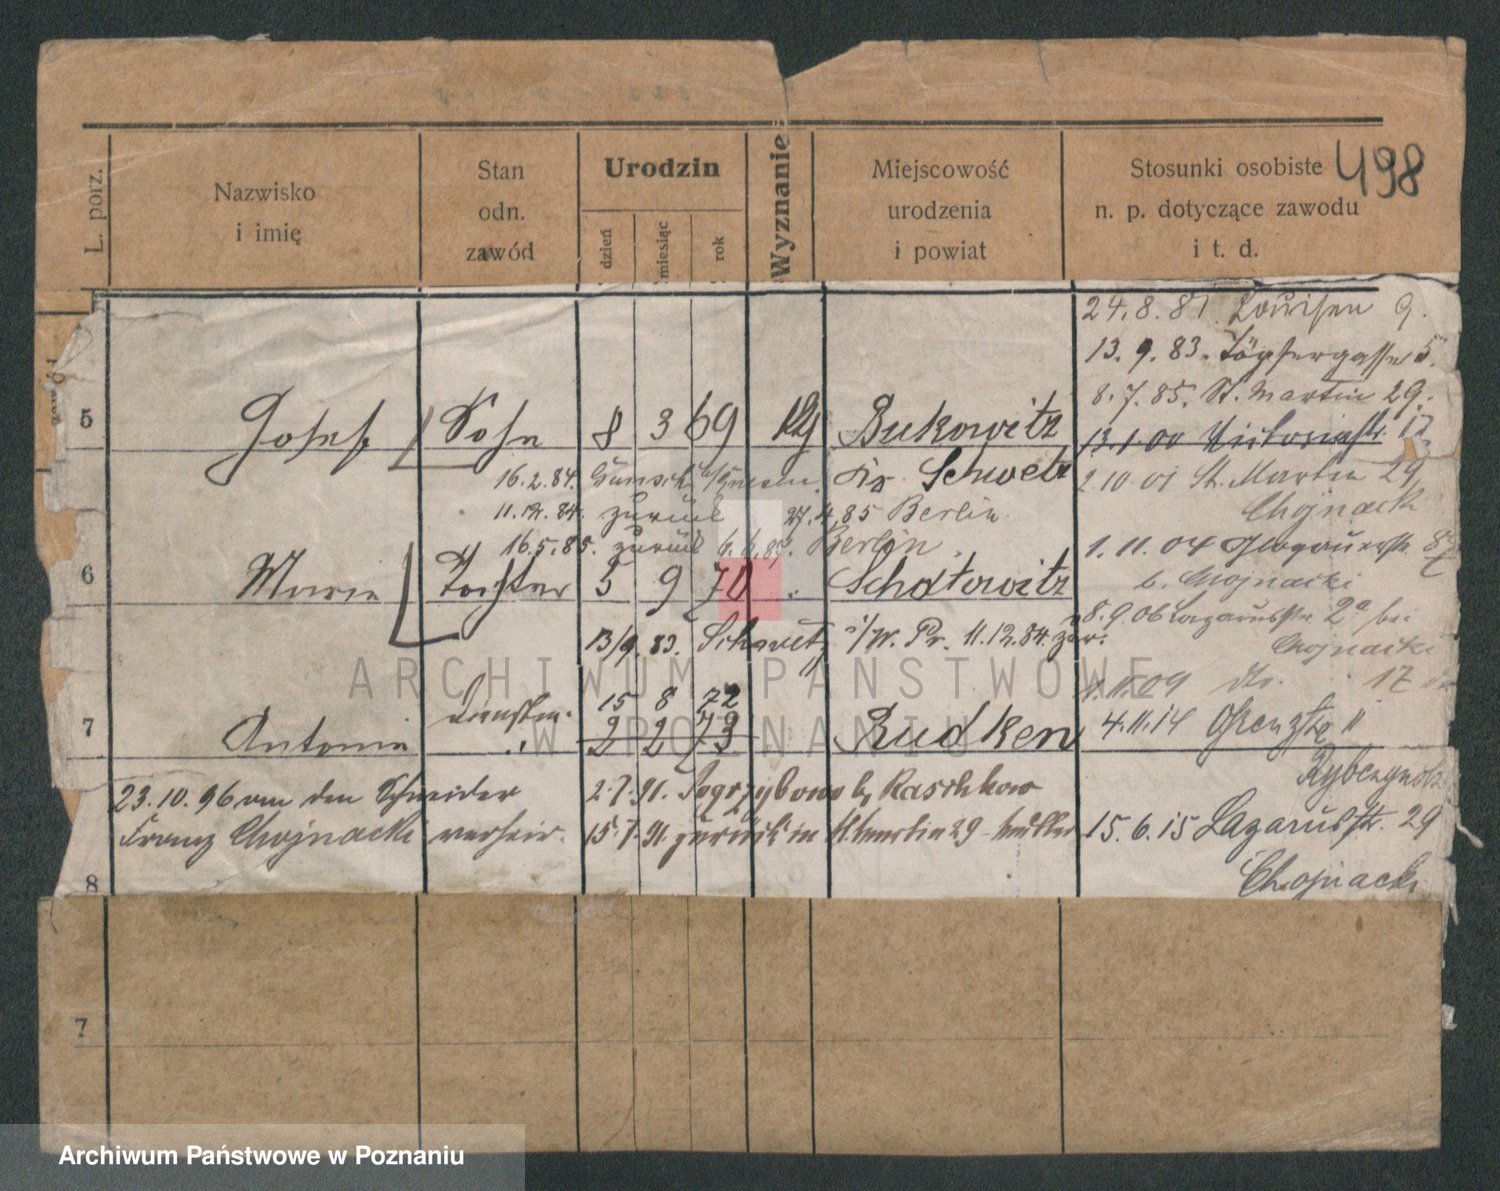 498
L. porz.
Nazwisko
i imię
Stan
odn.
zawód
Urodzin
dzień
miesiąc
rok
Wyznanie
Miejscowość
urodzenia
i powiat
Stosunki osobiste
n. p. dotyczące zawodu
i t. d.
24.8.81 Louisen 9.
13.9.83. Töpfergasse 5.
8.7.85. St. Martin 29.
5 Josef Sohn 8 3 69 Bukowitz
13.1.00 Victoriastr. 17
16.2.84. Kr. Schwetz
2.10.01 St. Martin 29
Chojnacki
11.12.84. zurück 27.4.85 Berlin
16.5.85. zurück 6.6.85. Berlin.
1.11.04 Glogauerstr. 87
b. Chojnacki
6 Marie Tochter 5 9 70 Schatowitz
8.9.06 Lazarusstr. 2a bei
Chojnacki
13/9.83. Schwetz i/W. Pr. 11.12.84. zur.
09 do. 17
15 8 72
7 Antonie 2 2 73 Rudken
4.11.14
23.10.96 an den Schneider
Franz Chojnacki verheir.
2.7.91. Pogrzybowo b. Raschkow
15.7.91. zurück in St. Martin 29
15.6.15 Lazarusstr. 29
Chojnacki
8
7
ARCHIWUM PAŃSTWOWE
W POZNANIU
Archiwum Państwowe w Poznaniu